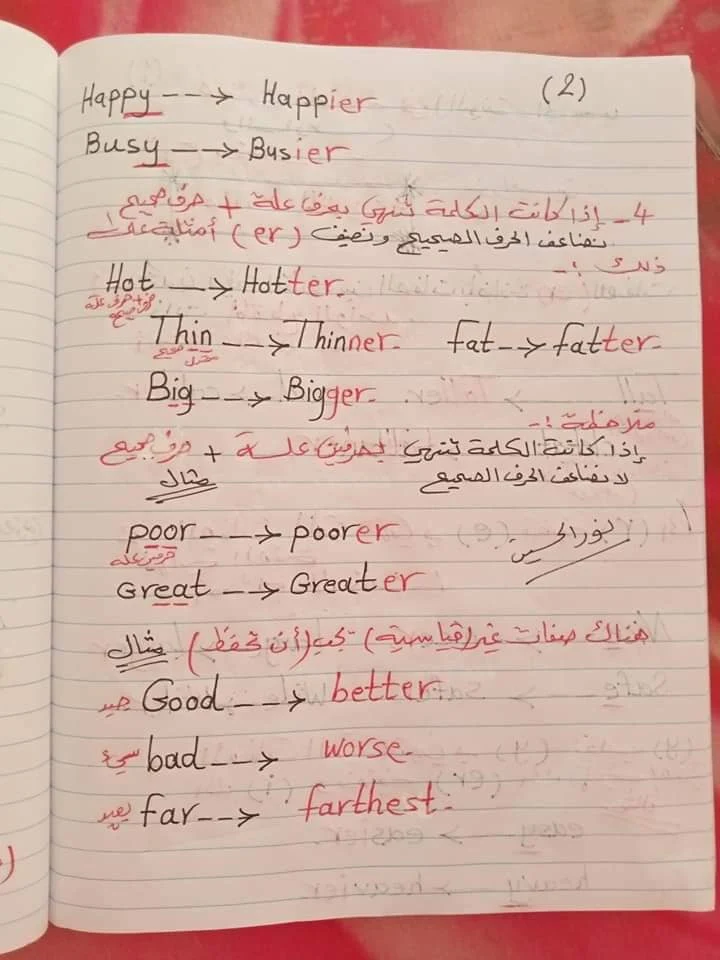 (2)
Happy ---> Happier
Busy ---> Busier
4- إذا كانت الكلمة تنتهي بحرف علة + حرف صحيح
نضاعف الحرف الصحيح ونضيف (er) أمثلة على
ذلك :-
Hot ---> Hotter.
حرف علة + حرف صحيح
Thin ---> Thinner. fat ---> fatter.
صحيح
Big ---> Bigger.
ملاحظة :-
إذا كانت الكلمة تنتهي بحرفين علة + حرف صحيح
لا نضاعف الحرف الصحيح مثال
poor ---> poorer
حرفين علة
نور الحسين
Great ---> Greater
هناك صفات غير (قياسية) يجب (أن تحفظ) مثال
جيد Good ---> better.
سيء bad ---> worse.
بعيد far ---> farthest.